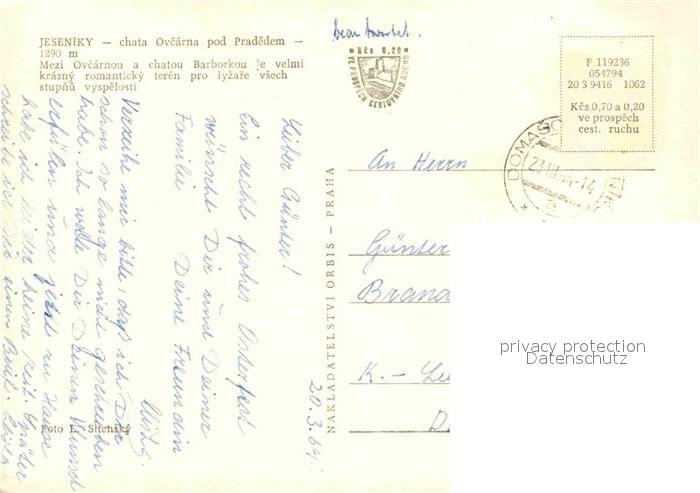 bean twortet.
JESENÍKY — chata Ovčárna pod Pradědem —
1290 m
Mezi Ovčárnou a chatou Barborkou je velmi
krásný romantický terén pro lyžaře všech
stupňů vyspělosti
Kčs 0,20
VE PROSPĚCH CESTOVNÍHO RUCHU
F 119236
054794
20 3 9416 1062
Kčs 0,70 a 0,20
ve prospěch
cest. ruchu
DOMAŠO
23.III.
-14
Lieber Günter!
Ein recht frohes Osterfest
wünscht Dir und Deiner
Familie Deine Freundin
20.3.64.
Verzeihe mir bitte, daß ich Dir
schon so lange nicht geschrieben
habe. Ich wollte Dir Deinen Wunsch
erfüllen und jetzt zu Hause
habe ich leider keine Zeit. Später
schreibe ich Dir einen Brief.
Foto L. Sitenský
NAKLADATELSTVÍ ORBIS — PRAHA
An Herrn
Günter
Brand
K.-
D
privacy protection
Datenschutz